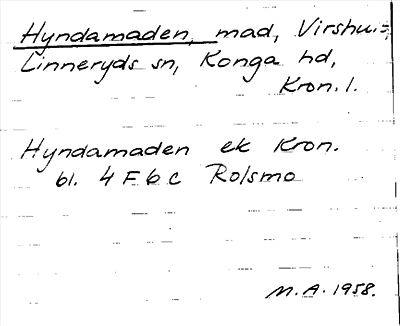 Hyndamaden, mad, Virshu:=,
Linneryds sn, Konga hd,
Kron. l.
Hyndamaden ek Kron.
bl. 4 F 6 c Rolsmo
M.A. 1958.